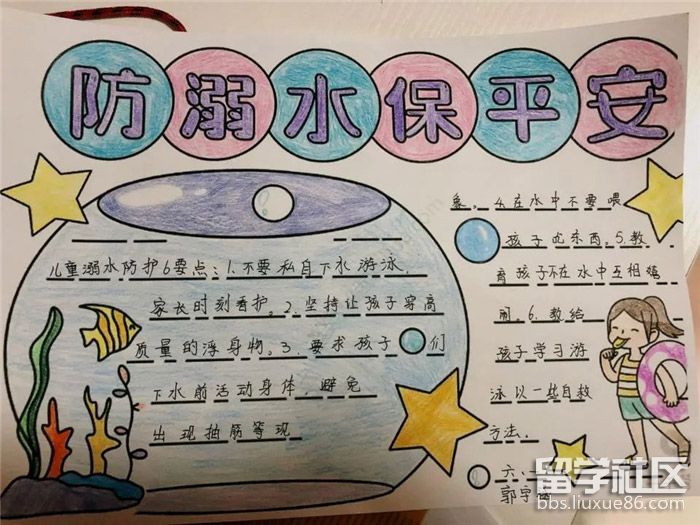 防溺水保平安
儿童溺水防护6要点：1.不要私自下水游泳，
家长时刻看护。2.坚持让孩子穿高
质量的浮身物。3.要求孩子们
下水前活动身体，避免
出现抽筋等现
象。4.在水中不要喂
孩子吃东西。5.教
育孩子不在水中互相嬉
闹。6.教给
孩子学习游
泳以一些自救
方法。
六、
郭宇
留学社区
bbs.liuxue86.com